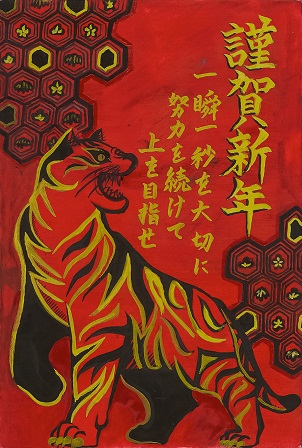 謹賀新年
一瞬一秒を大切に
努力を続けて
上を目指せ